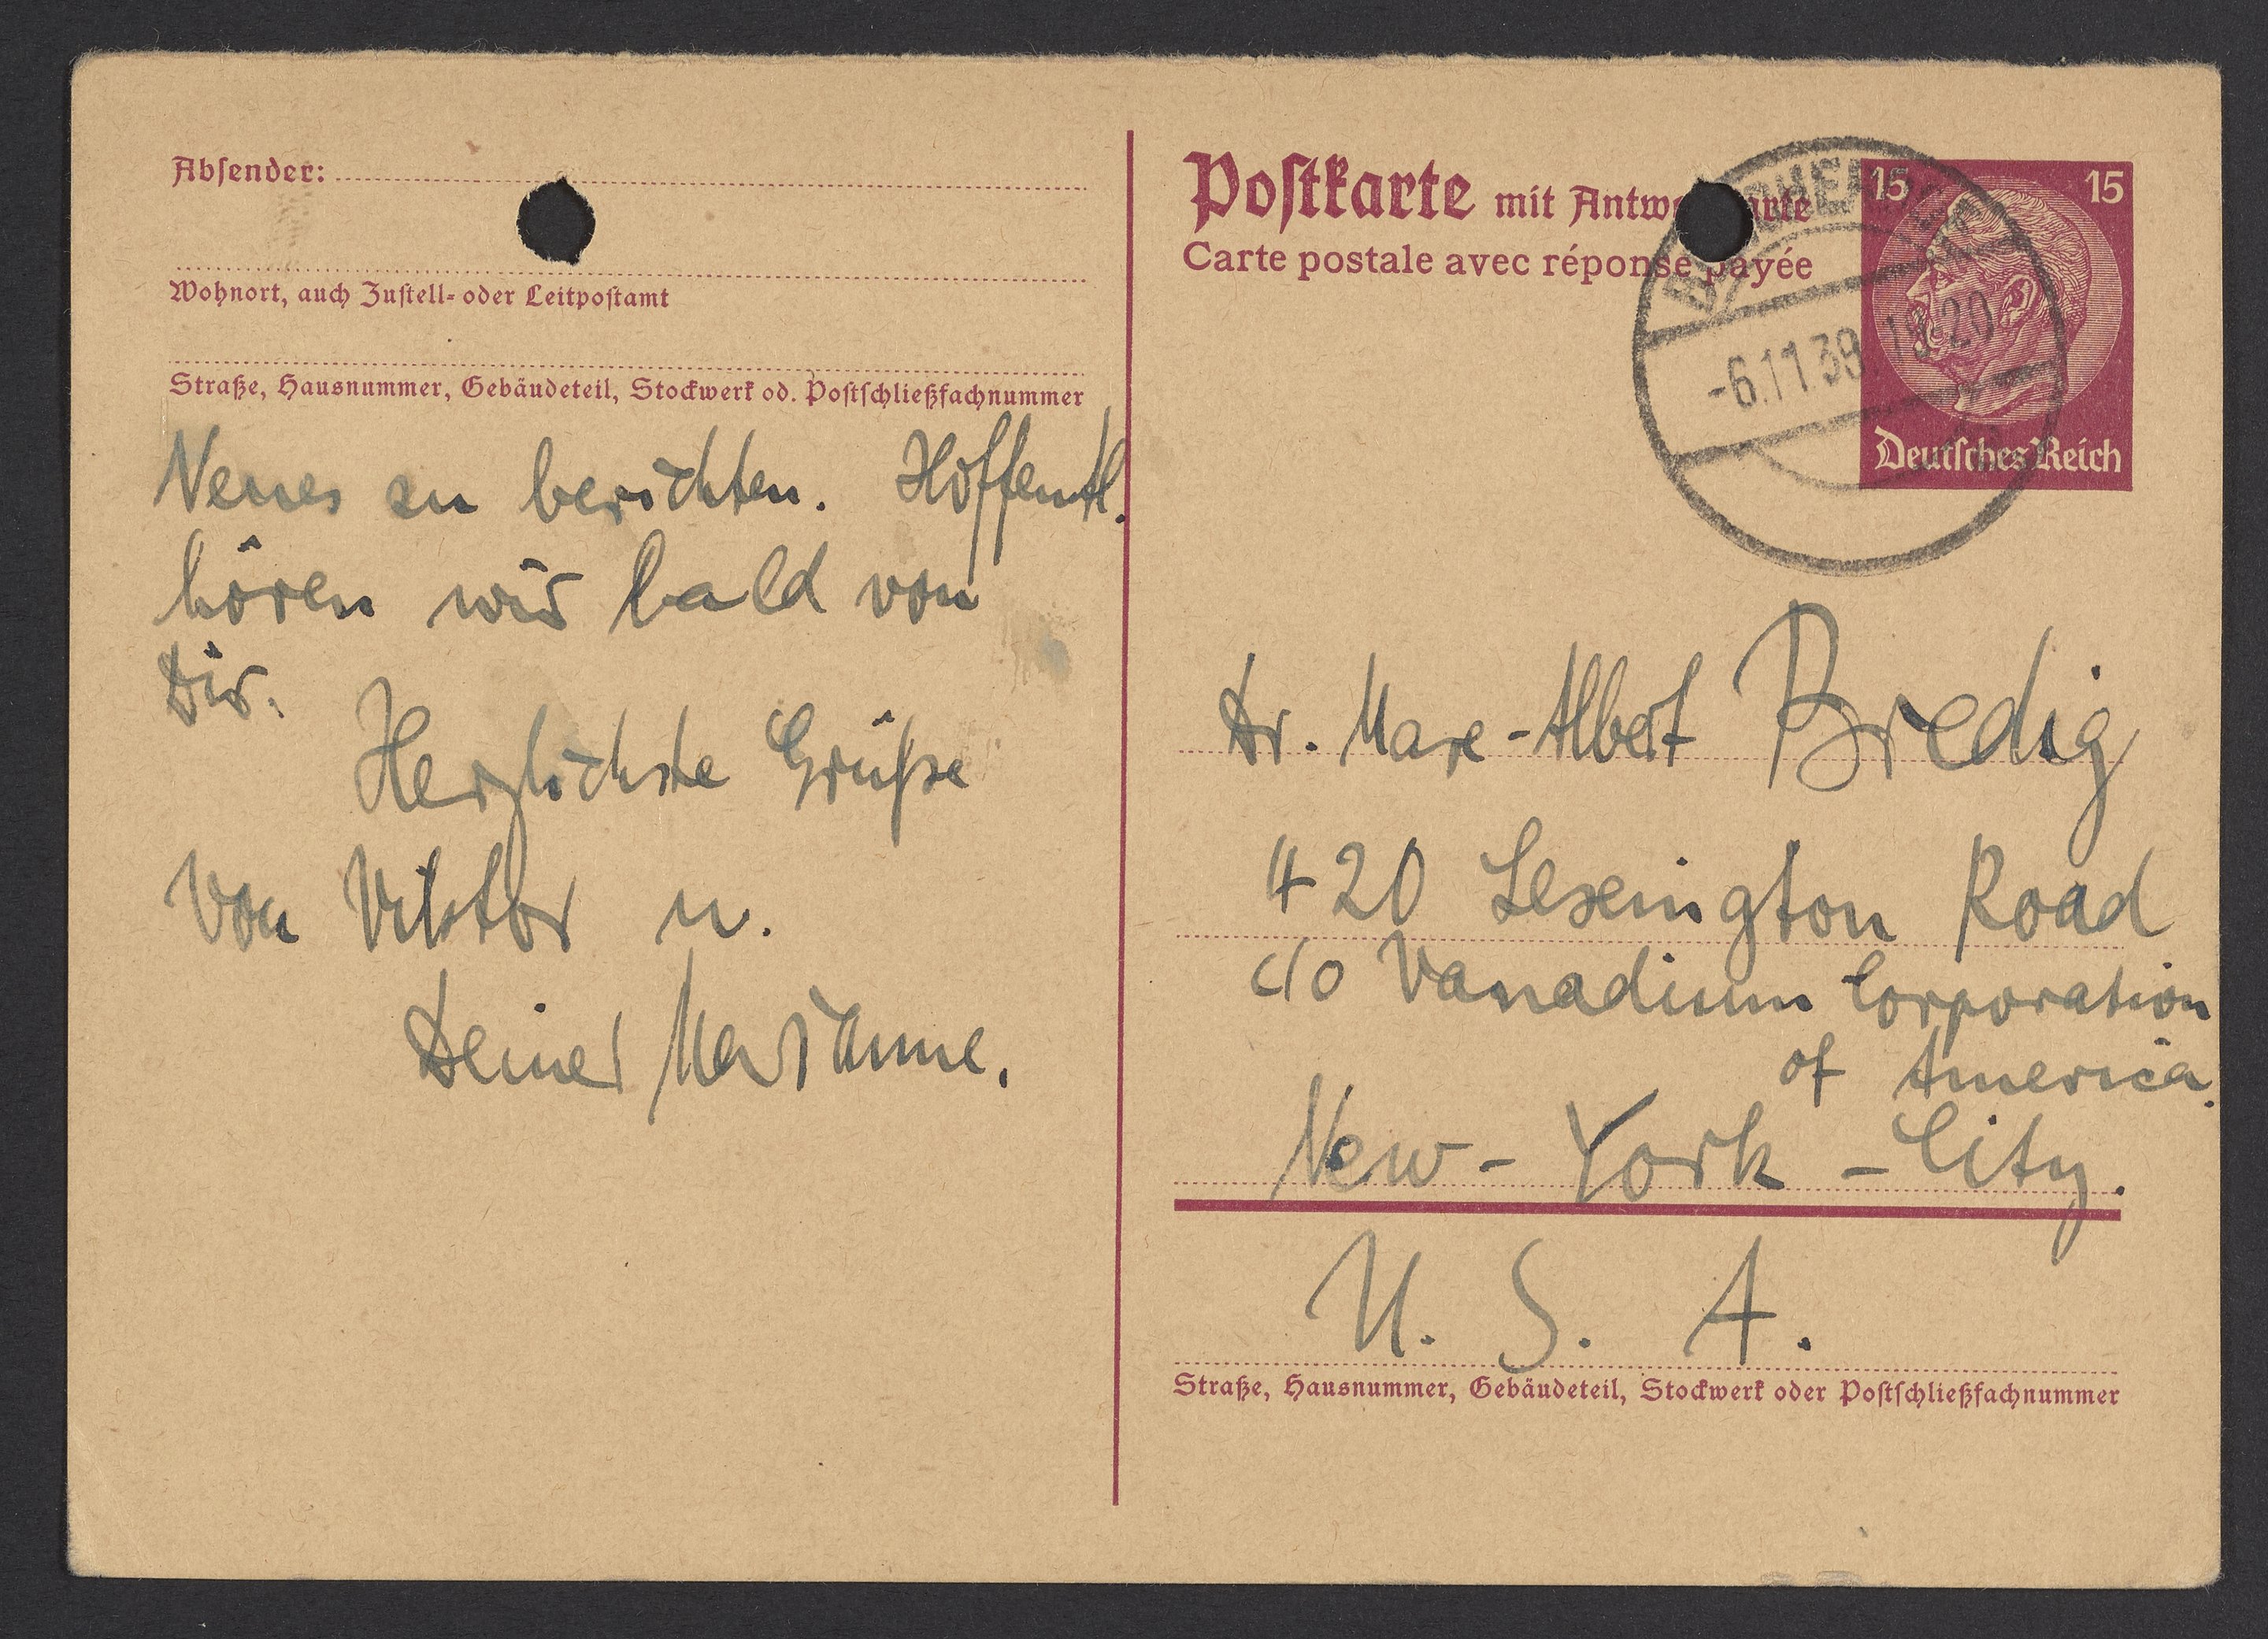 Absender:
Wohnort, auch Zustell- oder Leitpostamt
Straße, Hausnummer, Gebäudeteil, Stockwerk od. Postschließfachnummer
Neues zu berichten. Hoffentl.
hören wir bald von
Dir.
Herzlichste Grüße
von Viktor u.
Deiner Marianne.
Postkarte mit
Carte postale avec réponse payée
15 15
-6.11.39
Deutsches Reich
Dr. Marc-Albert Bredig
420 Lexington Road
c/o Vanadium Corporation
of America.
New-York-City.
U. S. A.
Straße, Hausnummer, Gebäudeteil, Stockwerk oder Postschließfachnummer